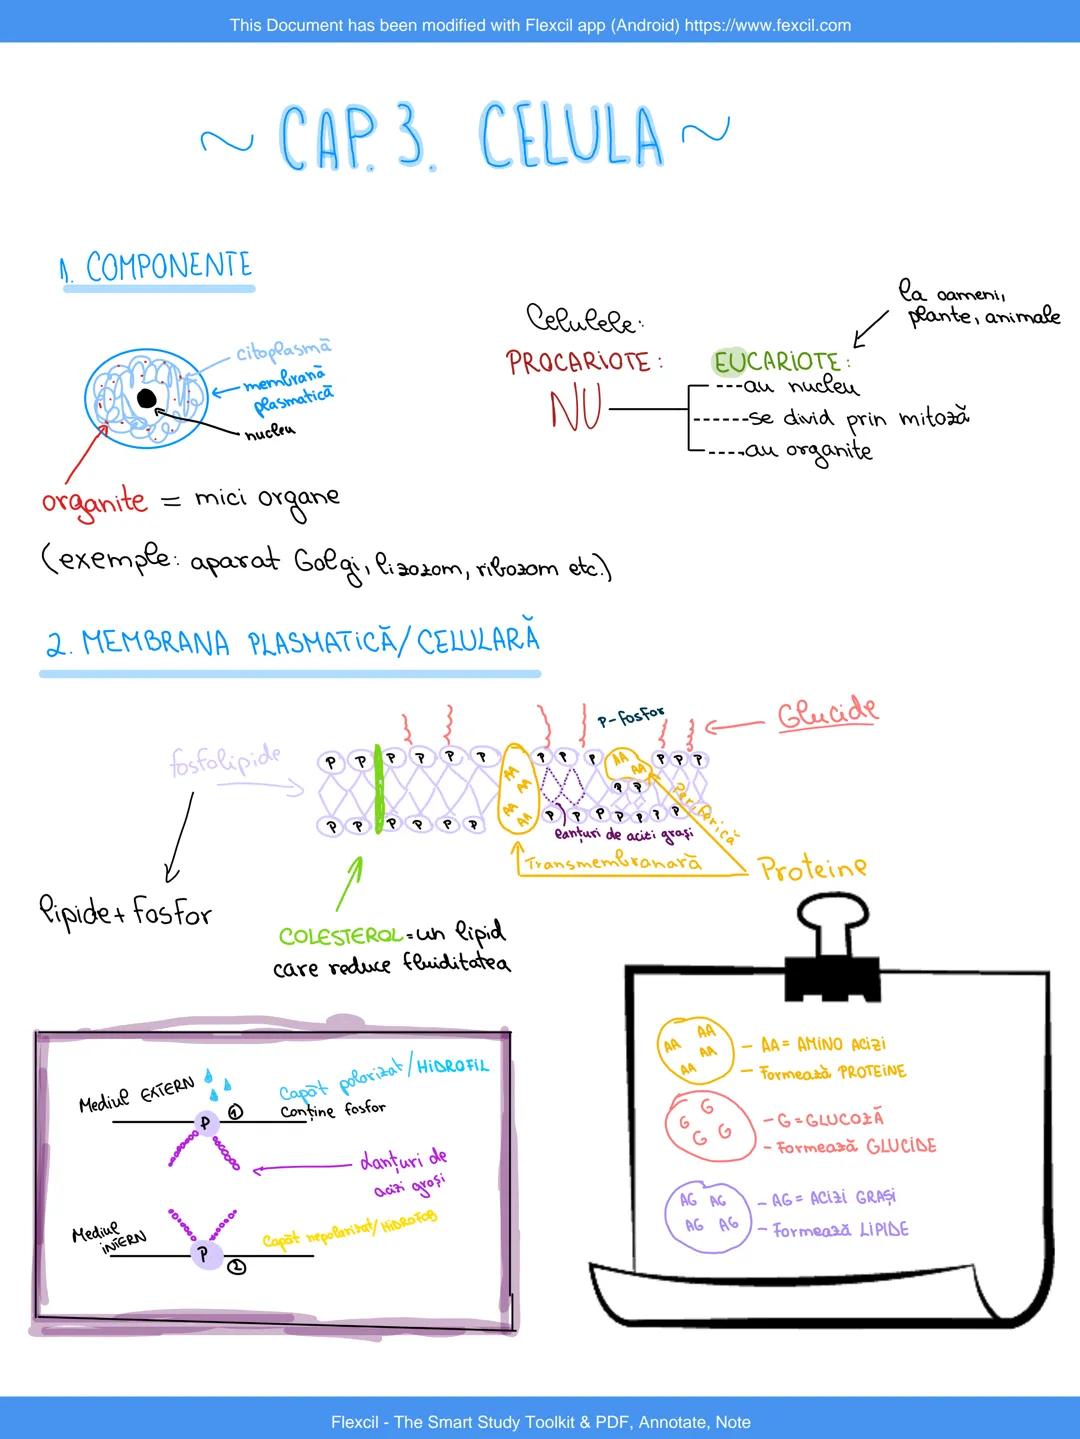 This Document has been modified with Flexcil app (Android) https://www.fexcil.com
~ CAP. 3. CELULA ~
1. COMPONENTE
citoplasmă
membrană
plasmatică
nucleu
organite = mici organe
(exemple: aparat Golgi, lizozom, ribozom etc.)
Celulele:
PROCARIOTE:
NU
EUCARIOTE:
la oameni,
plante, animale
---au nucleu
------se divid prin mitoză
----au organite
2. MEMBRANA PLASMATICĂ/CELULARĂ
fosfolipide
P-fosfor
Glucide
P P P P P P P P P AA AA P P P
AA AA AA AA
P P
P P P P P P P P P P P P
Periferică
lanțuri de acizi grași
Transmembranară
Proteine
lipide + fosfor
COLESTEROL = un lipid
care reduce fluiditatea
Mediul EXTERN
Capăt polarizat/HIDROFIL
Conține fosfor
P 1
Lanțuri de
acizi grași
Mediul
INTERN
Capăt nepolarizat/HIDROFOB
P 2
AA AA AA AA
- AA = AMINO ACIZI
- Formează PROTEINE
G G G G
- G = GLUCOZĂ
- Formează GLUCIDE
AG AG AG AG
- AG = ACIZI GRAȘI
- Formează LIPIDE
Flexcil - The Smart Study Toolkit & PDF, Annotate, Note